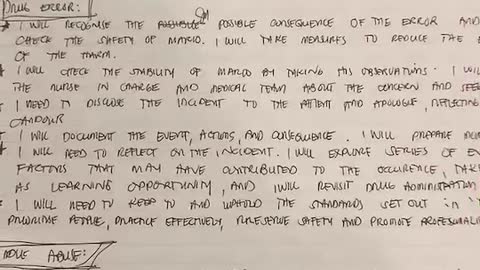 DRUG ERROR:
I WILL RECOGNISE THE POSSIBLE CONSEQUENCE OF THE ERROR AND
CHECK THE SAFETY OF MARIO. I WILL TAKE MEASURES TO REDUCE THE
OF THE HARM.
I WILL CHECK THE STABILITY OF MARIO BY TAKING HIS OBSERVATIONS. I WILL
THE NURSE IN CHARGE AND MEDICAL TEAM ABOUT THE CONCERN AND
I NEED TO DISCLOSE THE INCIDENT TO THE PATIENT AND APOLOGISE, REFLECTING
CANDOUR
I WILL DOCUMENT THE EVENT, ACTIONS, AND CONSEQUENCE. I WILL PREPARE
I WILL NEED TO REFLECT ON THE INCIDENT. I WILL EXPLORE SERIES OF
FACTORS THAT MAY HAVE CONTRIBUTED TO THE OCCURENCE,
AS LEARNING OPPORTUNITY, AND I WILL REVISIT DRUG ADMINISTRATION
I WILL NEED TO KEEP TO AND UPHOLD THE STANDARDS SET OUT IN
PRIORITISE PEOPLE, PRACTICE EFFECTIVELY, PRESERVE SAFETY AND PROMOTE
ABUSE: